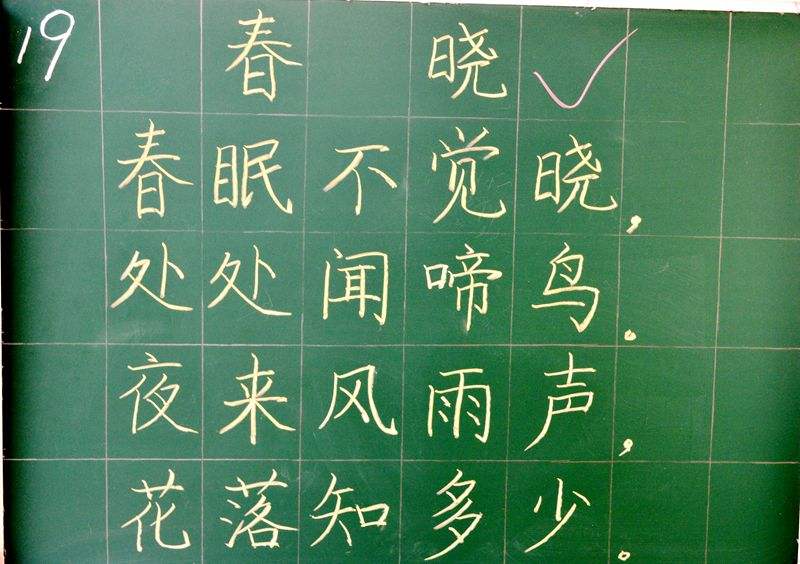 19
春晓
春眠不觉晓,
处处闻啼鸟。
夜来风雨声,
花落知多少。